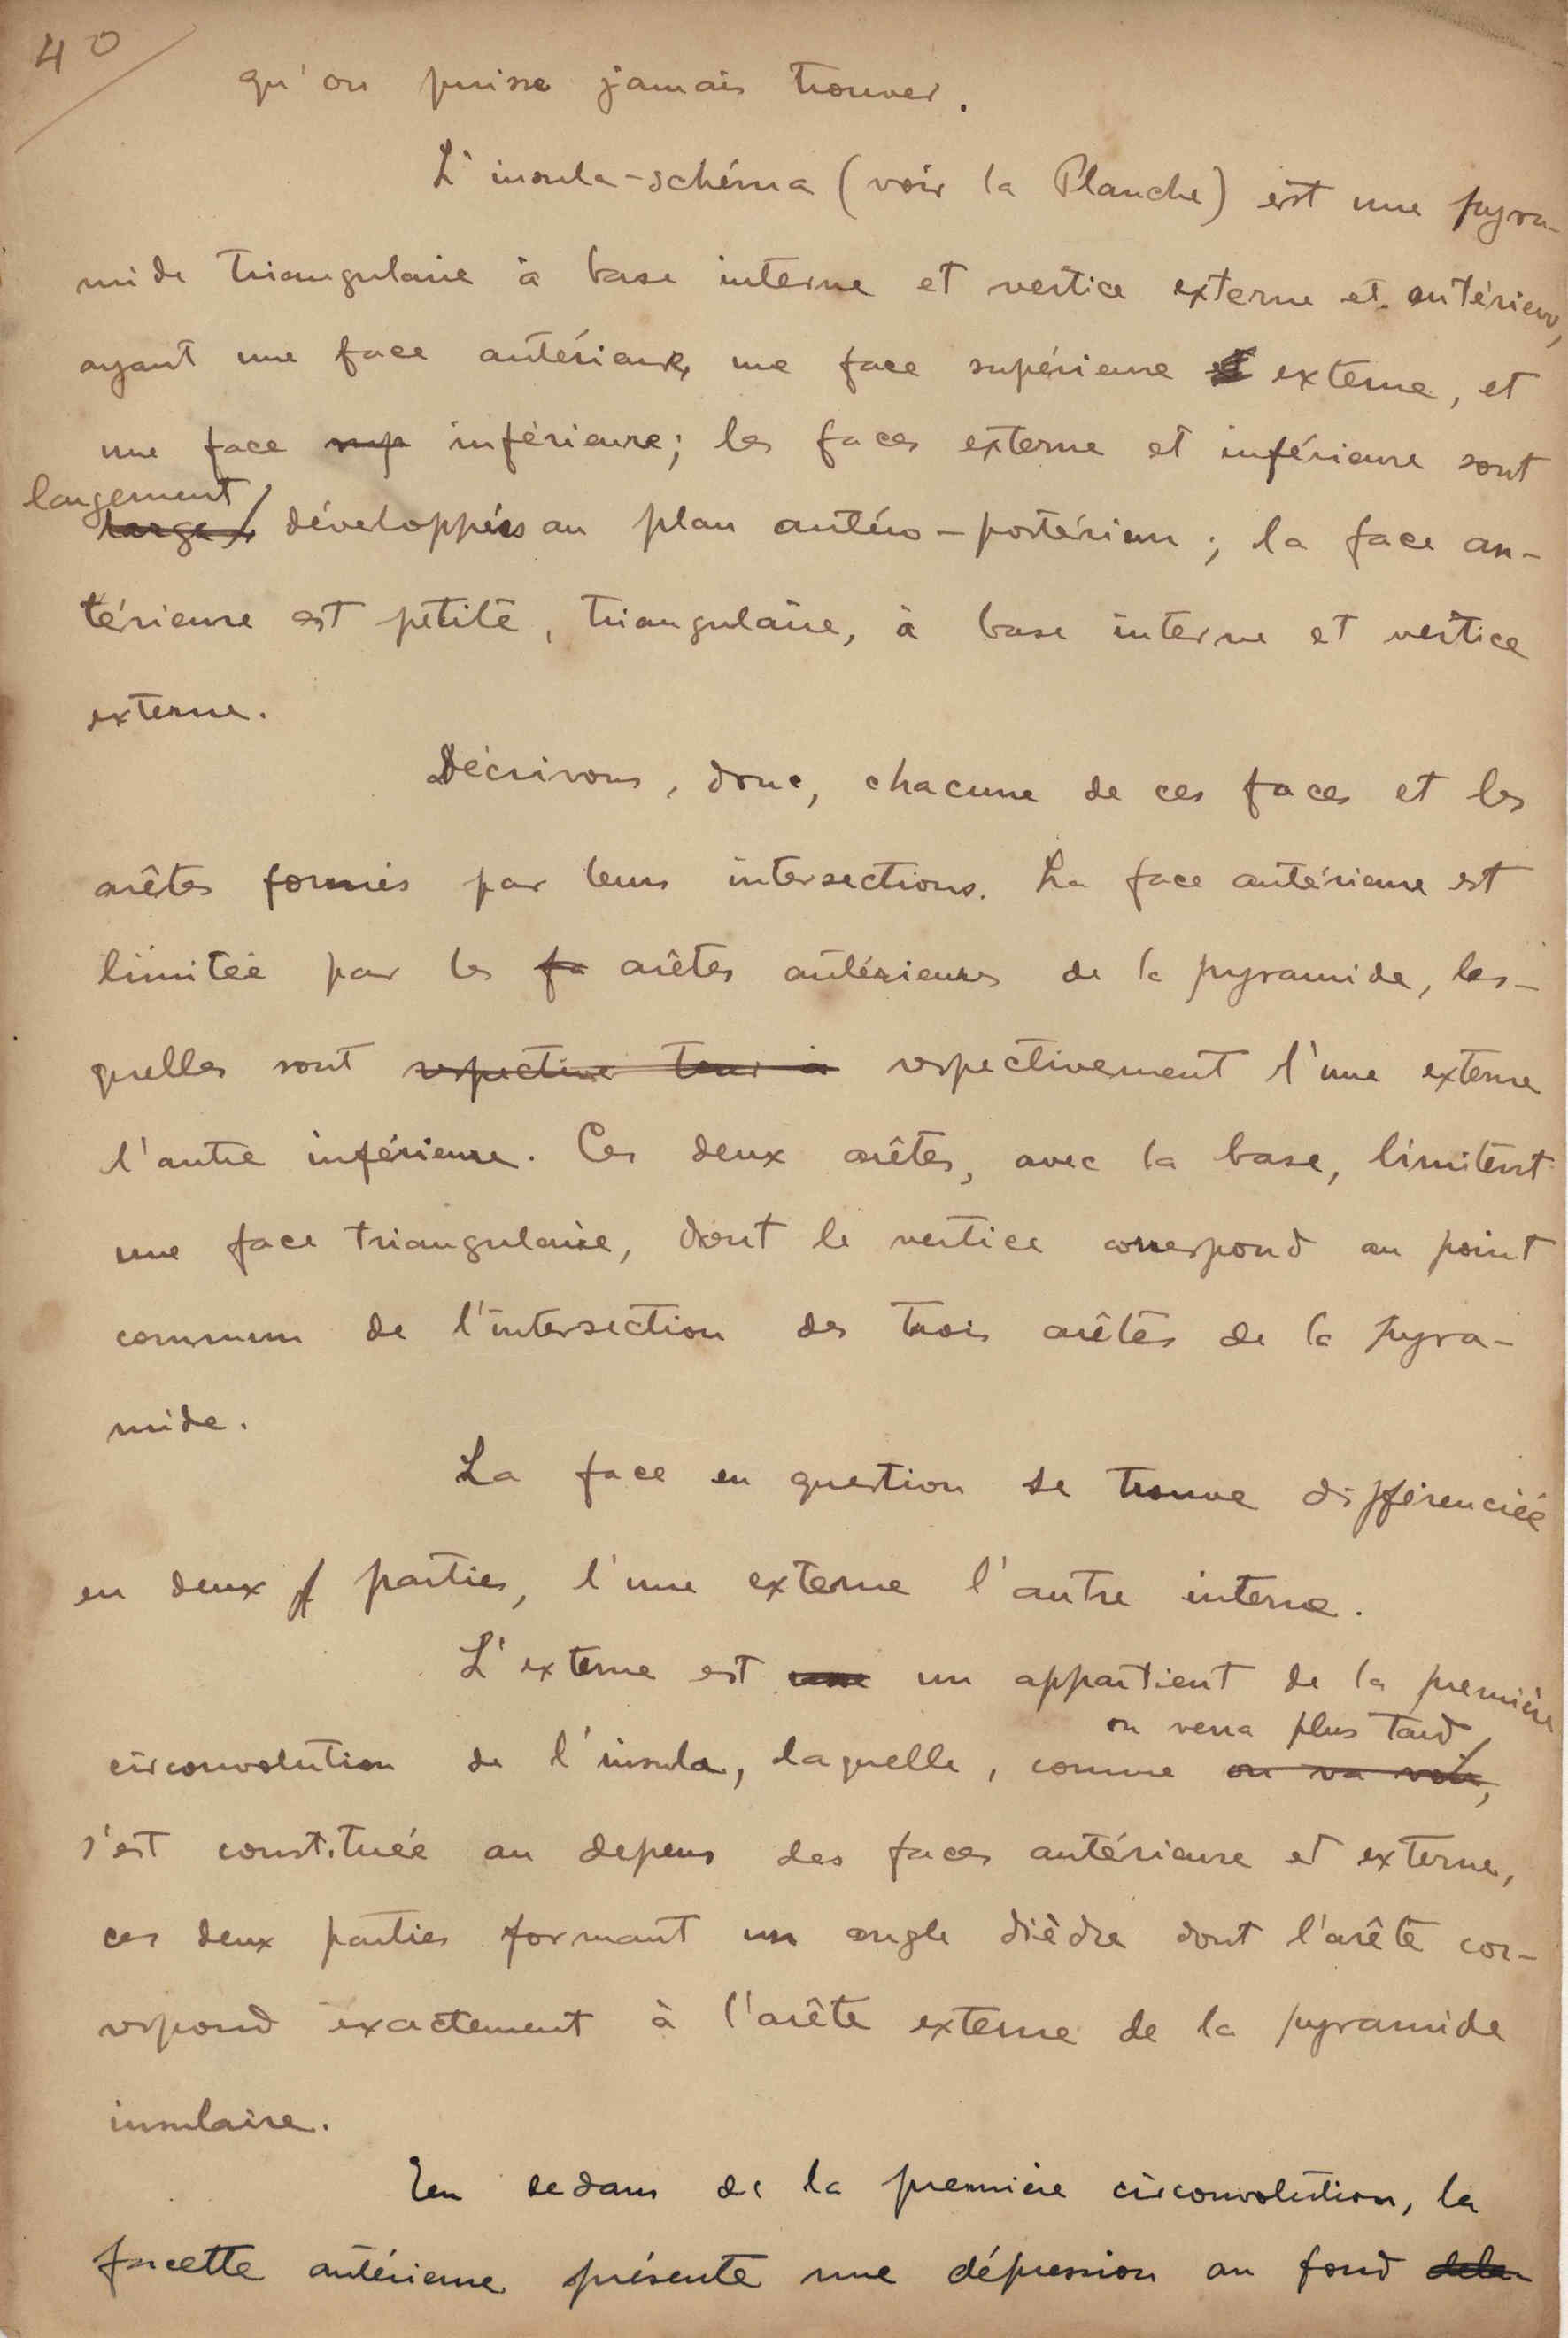 40
qu'on puisse jamais trouver.
L'insula-schéma (voir la Planche) est une pyra-
mide triangulaire à base interne et vertice externe et antérieur,
ayant une face antérieure, une face supérieure et externe, et
une face sup inférieure; les faces externe et inférieure sont
largement
large développées au plan antéro-postérieur; la face an-
térieure est petite, triangulaire, à base interne et vertice
externe.
Décrivons, donc, chacune de ces faces et les
arêtes formés par leurs intersections. La face antérieure est
limitée par les fa arêtes antérieures de la pyramide, les-
quelles sont respective tour à respectivement l'une externe
l'autre inférieure. Ces deux arêtes, avec la base, limitent
une face triangulaire, dont le vertice correspond au point
commun de l'intersection des trois arêtes de la pyra-
mide.
La face en question se trouve différenciée
en deux f parties, l'une externe l'autre interne.
L'externe est une un appartient de la première
on verra plus tard
circonvolution de l'insula, laquelle, comme on va voir,
s'est constituée au depens des faces antérieure et externe,
ces deux parties formant un angle dièdre dont l'arête cor-
respond exactement à l'arête externe de la pyramide
insulaire.
En dedans de la première circonvolution, la
facette antérieure présente une dépression au fond